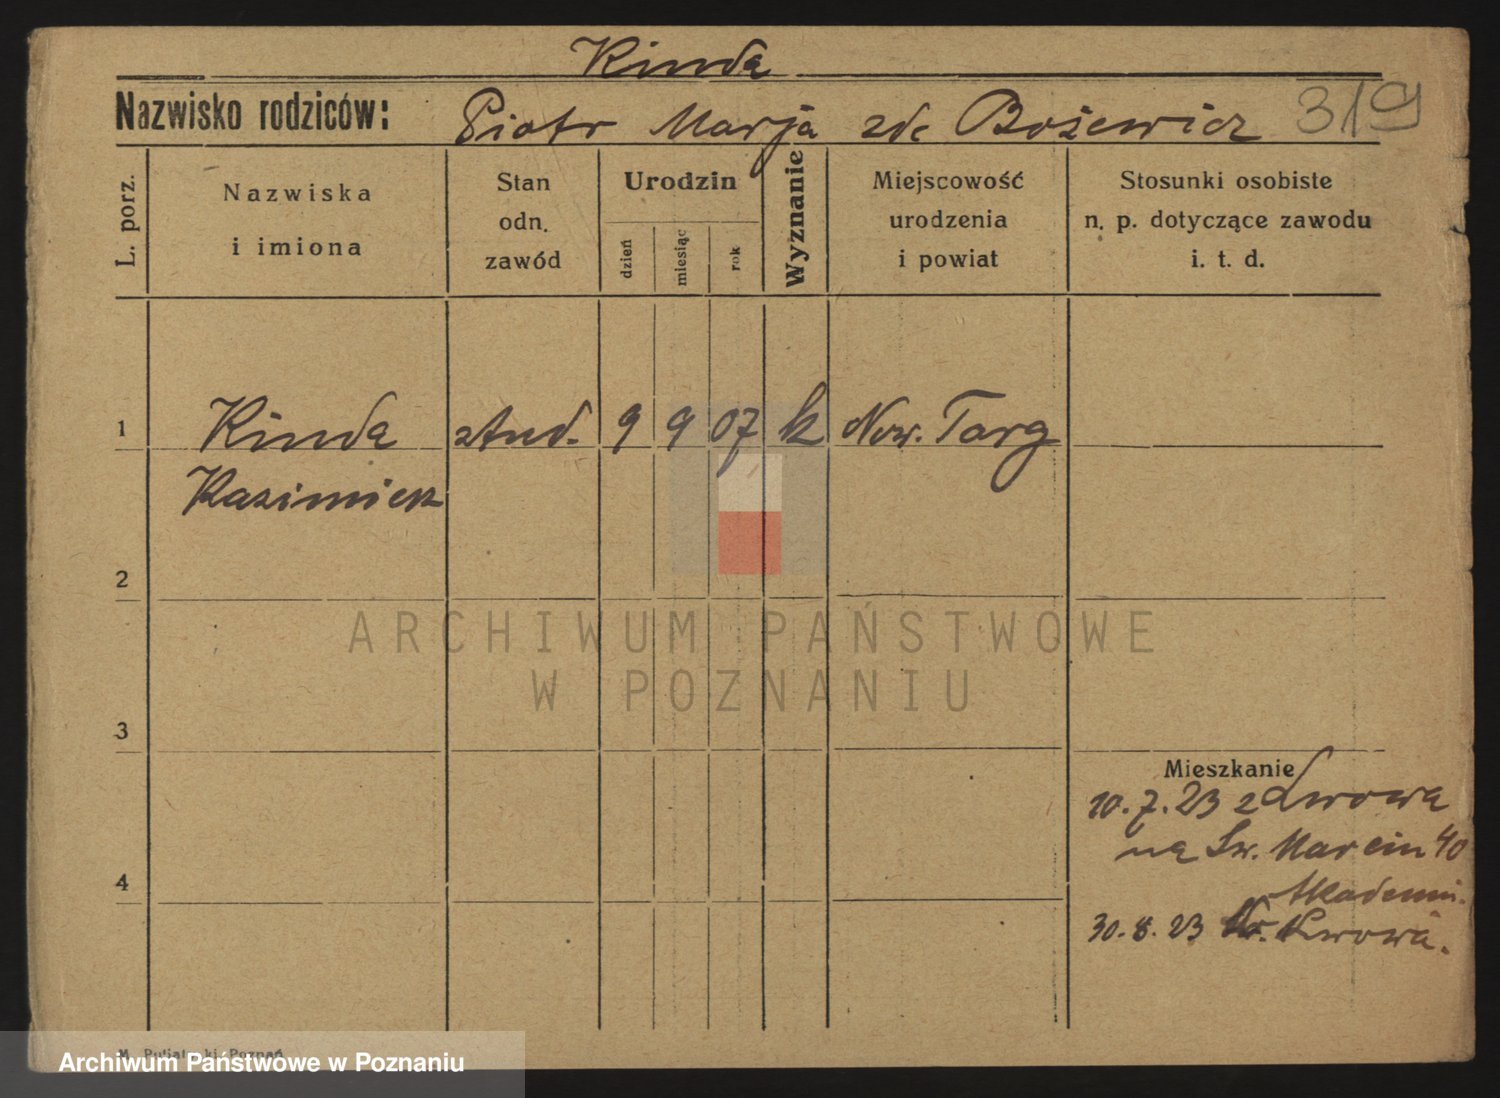 Kinda
Nazwisko rodziców: Piotr Marja zde Bożewicz 319
L. porz. Nazwiska i imiona Stan odn. zawód Urodzin dzień miesiąc rok Wyznanie Miejscowość urodzenia i powiat Stosunki osobiste n. p. dotyczące zawodu i. t. d.
1 Kinda stud. 9 9 07 k Now. Targ
Kazimierz
2
3
Mieszkanie
10.7.23 z Lwowa
na Św. Marcin 40
4
Akademi.
30.8.23 Lwowa.
ARCHIWUM PAŃSTWOWE
W POZNANIU
Poznań
Archiwum Państwowe w Poznaniu